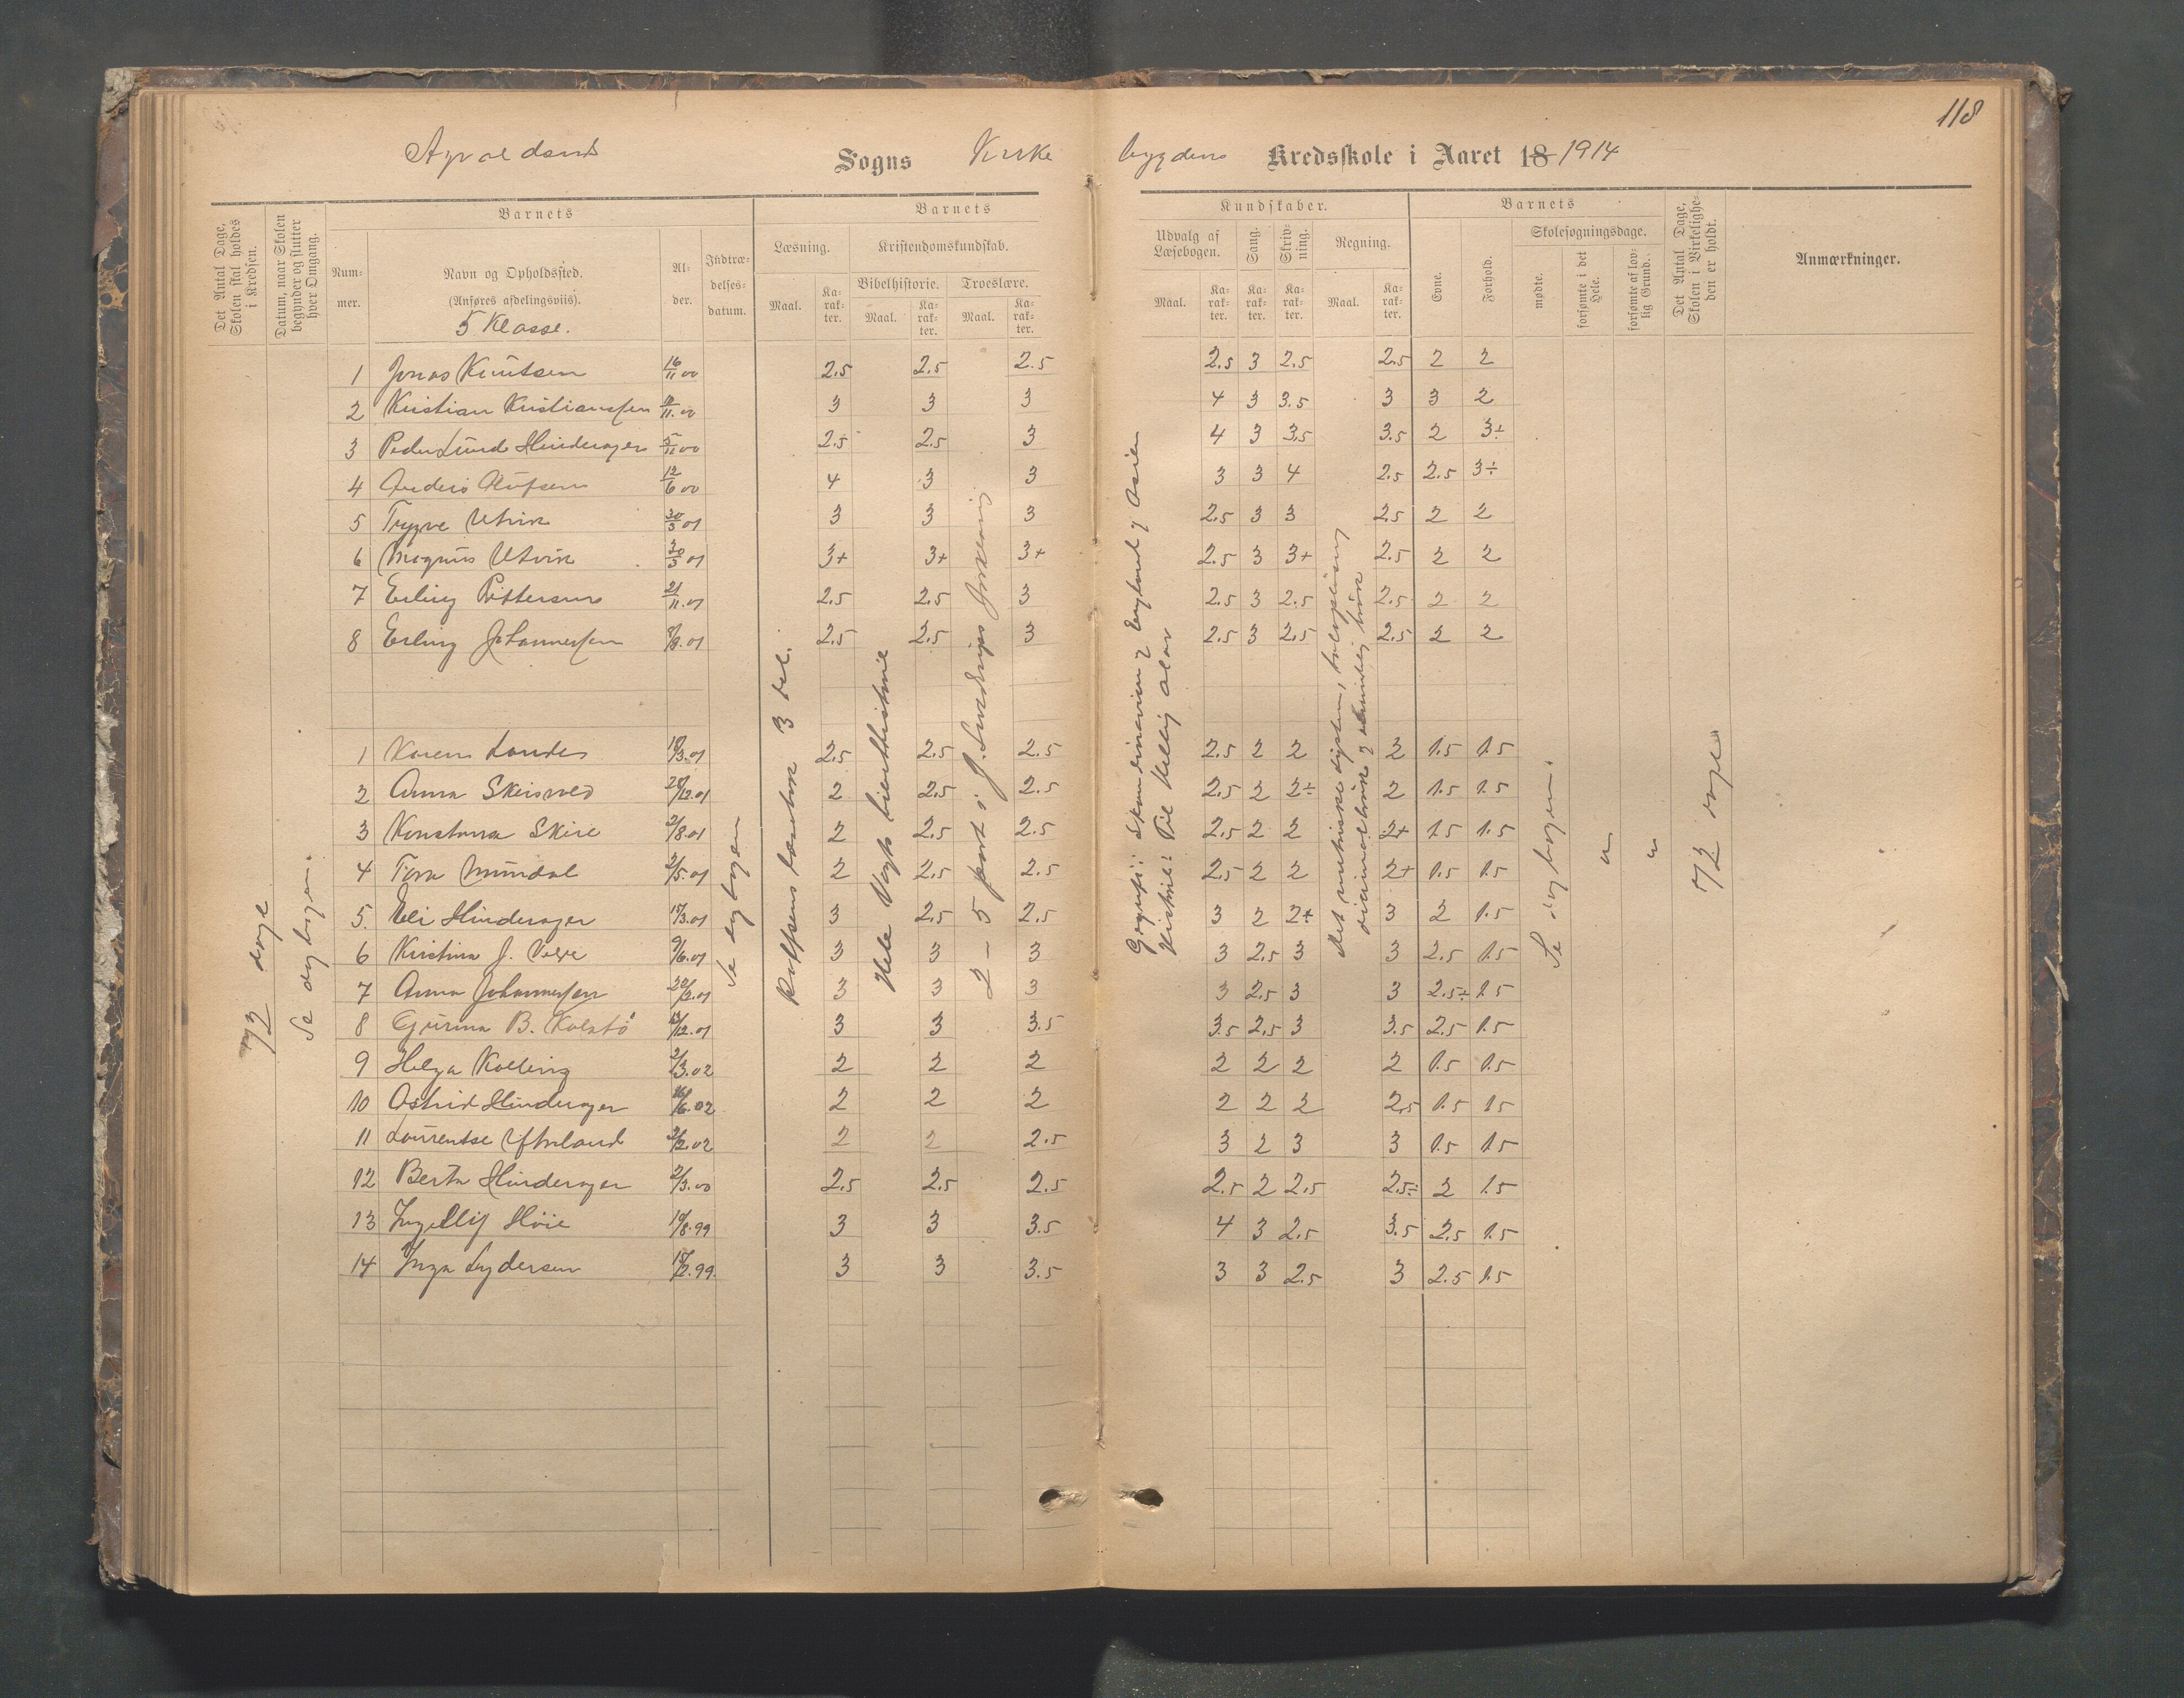 118
Sogns Kirke bygdens Kredsskole i Aaret 18 1914
Det Antal Dage, Skolen skal holdes i Kredsen.
Datum, naar Skolen begynder og slutter hver Omgang.
Barnets
Num-mer.
Navn og Opholdssted.
(Anføres afdelingsviis).
5 Klasse.
Al-der.
Indtræ-delses-datum.
Barnets
Læsning.
Maal.
Ka-rak-ter.
Kristendomskundskab.
Bibelhistorie.
Maal.
Ka-rak-ter.
Troeslære.
Maal.
Ka-rak-ter.
Kundskaber.
Udvalg af Læsebogen.
Maal.
Ka-rak-ter.
Sang.
Ka-rak-ter.
Skriv-ning.
Ka-rak-ter.
Regning.
Maal.
Ka-rak-ter.
Barnets
Evne.
Forhold.
Skolesøgningsdage.
mødte.
forsømte i det Hele.
forsømte af lov-lig Grund.
Det Antal Dage, Skolen i Virkelighe-den er holdt.
Anmærkninger.
1 Jonas Knutsen 16/11 00 2.5 2.5 2.5 2.5 3 2.5 2.5 2 2
2 Kristian Kristiansen /11.00 3 3 3 4 3 3.5 3 3 2
3 Peder Lund Hinderager 5/11 00 2.5 2.5 3 4 3 3.5 3.5 2 3÷
4 Anders 12/6 00 4 3 3 3 3 4 2.5 2.5 3÷
5 Trygve Utvik 30/3 01 3 3 3 2.5 3 3 2.5 2 2
6 Magnus Utvik 30/3 01 3+ 3+ 3+ 2.5 3 3+ 2.5 2 2
7 Erling Pettersen 21/11.01 2.5 2.5 3 2.5 3 2.5 2.5 2 2
8 Erling Johannessen /8.01 2.5 2.5 3 2.5 3 2.5 2.5 2 2
1 Karen Landes 18/3.01 2.5 2.5 2.5 2.5 2 2 2 1.5 1.5
2 Anna Skeisvold 28/12.01 2 2.5 2.5 2.5 2 2÷ 2 1.5 1.5
3 Konstansa Skeie 2/8.01 2 2.5 2.5 2.5 2 2 2+ 1.5 1.5
4 Tora Mundal 2/5.01 2 2.5 2.5 2.5 2 2 2+ 1.5 1.5
5. Eli Hinderager 15/3.01 3 2.5 2.5 3 2 2÷ 3 2 1.5
6 Kristina J. 9/6.01 3 3 3 3 2.5 3 3 2.5 1.5
7 Anna Johannessen 22/2.01 3 3 3 3 2.5 3 3 2.5÷ 1.5
8 Gurina B. Kolstø 13/12.01 3 3 3.5 3.5 2.5 3 3.5 2.5 1.5
9 Helga Kolling 2/3.02 2 2 2 2 2 2 2 1.5 1.5
10 Astrid Hinderager /6.02 2 2 2 2 2 2 2.5 1.5 1.5
11 Laurentse /2.02 2 2 2.5 3 2 3 3 1.5 1.5
12 Berta Hinderager 2/3.00 2.5 2.5 2.5 2.5 2 2.5 2.5÷ 2 1.5
13 Høie 19/8.99 3 3 3.5 4 3 2.5 3.5 2.5 1.5
14 Inga Lydersen 18/2.99. 3 3 3.5 3 3 2.5 3 2.5 1.5
72 dage
Se dagbogen.
Se dagbogen
Rolfsens læsebok 3 del.
Hele Vogts bibelhistorie
2 – 5 part i J. Sverdrups forklaring
Geografi: Skandinavien, England og Asien
Historie: Til Hellig Olav
Det metriske system,
Se dagbogen.
"
"
72 dage